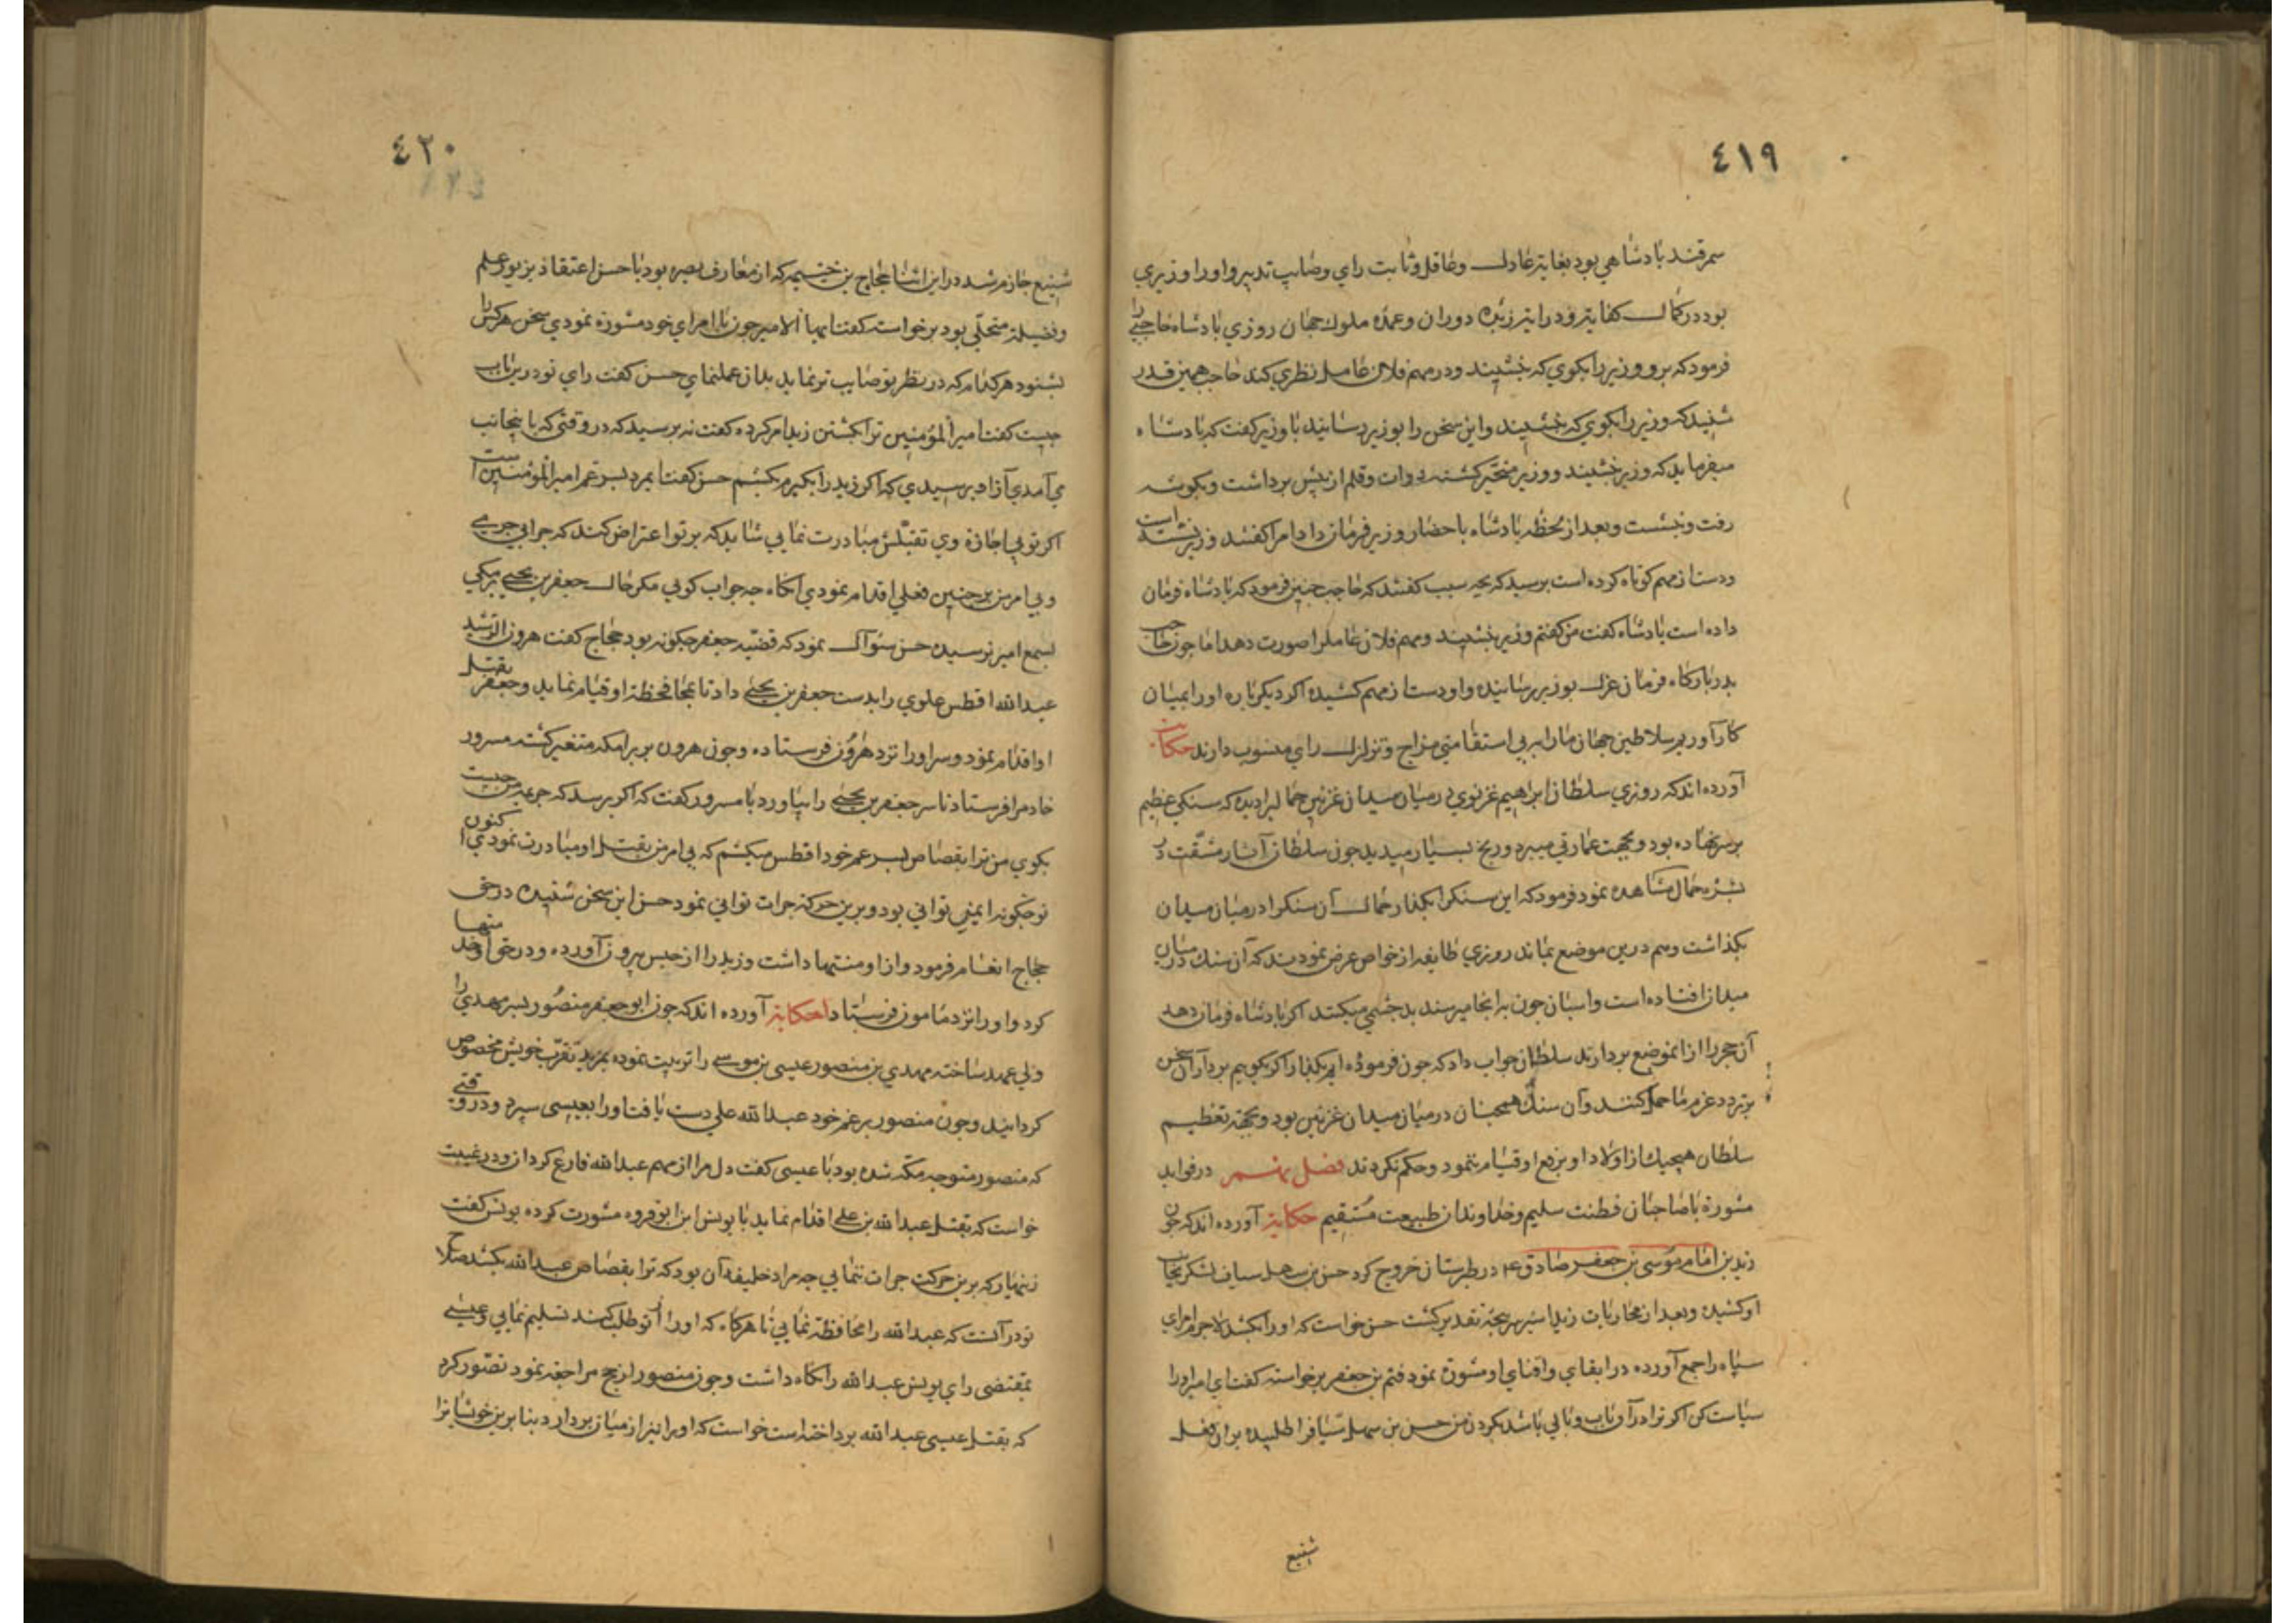 ٤١٩
سمرقند بادشاهي بود بغايت عادل وعاقل وثابت راي وصايب تدبير واورا وزيري
بود در كمال كفايت ودرايت زبده دوران وعمده ملوك جهان روزي بادشاه حاجبي را
فرمود كه برو وزير را بكوي كه بنشيند ودر مهم فلان عامل نظري كند حاجب همين قدر
شنيد كه وزير را بكوي كه بنشيند واين سخن را بوزير رسانيد با وزير كفت كه بادشاه
ميفرمايد كه وزير بنشيند ووزير متحير كشته دوات وقلم از پيش برداشت وبكوشه
رفت وبنشست وبعد از لحظه بادشاه باحضار وزير فرمان داد امرا كفتند وزير نشسته است
ودست از مهم كوتاه كرده است برسيد كه بچه سبب كفتند كه حاجب چنين فرمود كه بادشاه فرمان
داده است بادشاه كفت من كفتم وزير بنشيند ومهم فلان عامل را صورت دهد اما چون حاجب
بدر باركاه فرمان عزل بوزير رسانيده واو دست از مهم كشيده اكر ديكر باره اورا بميان
كار آوريم سلاطين جهان مارا به بي استقامتي مزاج وتزلزل راي منسوب دارند حكايت
آورده اند كه روزي سلطان ابراهيم غزنوي در ميان ميدان غزنين حمالي را ديد كه سنكي عظيم
بر سر نهاده بود وبجهت عمارتي ميبرد ورنج بسيار ميديد چون سلطان آثار مشقت در
بشره حمال مشاهده نمود فرمود كه اين سنك را بكذار حمال آن سنك را در ميان ميدان
بكذاشت وهم درين موضع بماند روزي طايفه از خواص عرض نمودند كه آن سنك در ميان
ميدان افتاده است واسبان چون به انجا ميرسند بدچشمي ميكنند اكر بادشاه فرمان دهد
آن حجر را از انموضع بردارند سلطان جواب داد كه چون فرموده ايم بكذار اكر بكوييم بردار آن سخن
بر تردد عزم ما حمل كنند وآن سنك همچنان در ميان ميدان غزنين بود وبجهة تعظيم
سلطان هيچيك از اولاد او برفع او قيام ننمود وحكم نكردند فصل نهم در فوايد
مشورة با صاحبان فطنت سليم وخداوندان طبيعت مستقيم حكايت آورده اند كه چون
زيد بن امام موسى بن جعفر صادق ع در طبرستان خروج كرد حسن بن سهل سياف لشكر بجانب
او كشيد وبعد از محاربات زيد اسير سرپنجه تقدير كشت حسن خواست كه اورا بكشد لاجرم امراي
سپاه را جمع آورده در ابقاي وافناي او مشورة نمود قثم بن جعفر برخواسته كفت اي امير اورا
سياست كن اكر ترا در آن باب وبالي باشد بكردن من حسن بن سهل سياف را طلبيده بران فعل
شنيع
٤٢٠
شنيع جازم شد در اين اثنا حجاج بن خثيمه كه از معارف بصره بود با حسن اعتقاد بزيور علم
وفضيلة متحلي بود برخواست كفت ايها الامير چون با امراي خود مشورة نمودي سخن هر كس را
بشنود هر كدام كه در نظر تو صايب تر نمايد بدان عمل نماي حسن كفت راي تو درين باب
چيست كفت امير المؤمنين ترا بكشتن زيد امر كرده كفت نه برسيد كه در وقتي كه باينجانب
مي آمدي آزاد برسيدي كه اكر زيد را بكيرم بكشم حسن كفت ايمرد پسر عم امير المؤمنين است
اكر تو بي اجازة وي بقتلش مبادرت نمايي شايد كه بر تو اعتراض كند كه چرا بي جريمه
وبي امر من بر چنين فعلي اقدام نمودي انكاه چه جواب كويي مكر حال جعفر بن يحيى برمكي
بسمع امير نرسيده حسن سئوال نمود كه قضيه جعفر چكونه بود حجاج كفت هرون الرشيد
عبد الله افطس علوي را بدست جعفر بن يحيى داد تا بمحافظة او قيام نمايد وجعفر بقتل
او اقدام نمود وسر اورا نزد هرون فرستاده وچون هرون بر برامكه متغير كشته مسرور
خادم را فرستاد تا سر جعفر بن يحيى را بياورد با مسرور كفت كه اكر برسد كه جريمه من چيست
بكوي من ترا بقصاص پسر عم خود افطس ميكشم كه بي امر من بقتل او مبادرت نمودي اكنون
تو چكونه ايمني تواني بود وبرين حركة جرات تواني نمود حسن اين سخن شنيده در حق
حجاج انعام فرمود واز او منتها داشت وزيد را از حبس بيرون آورده ودر حق او منتها
كرد واورا نزد مامون فرستاد حكاية آورده اند كه چون ابو جعفر منصور پسر مهدي را
ولي عهد ساخته مهدي بن منصور عيسى بن موسى را تربيت نموده بمزيد تقرب خويش مخصوص
كردانيد وچون منصور بر عم خود عبد الله علي دست يافت اورا بعيسى سپرد ودر وقتي
كه منصور متوجه مكه شده بود با عيسى كفت دل مرا از مهم عبد الله فارغ كردان ودر غيبت
خواست كه بقتل عبد الله بن علي اقدام نمايد با يونس ابن ابو فروه مشورت كرده يونس كفت
زينهار كه برين حركت جرات ننمايي چه مراد خليفه آن بود كه ترا بقصاص عبد الله بكشد صلاح
تو در آنست كه عبد الله را محافظة نمايي تا هركاه كه اورا از تو طلب كنند تسليم نمايي وعيسى
بمقتضى راي يونس عبد الله را نكاه داشت وچون منصور از حج مراجعة نمود تصور كرد
كه بقتل عيسى عبد الله برداخته است خواست كه اورا نيز از ميان بردارد بنا برين خويشانرا